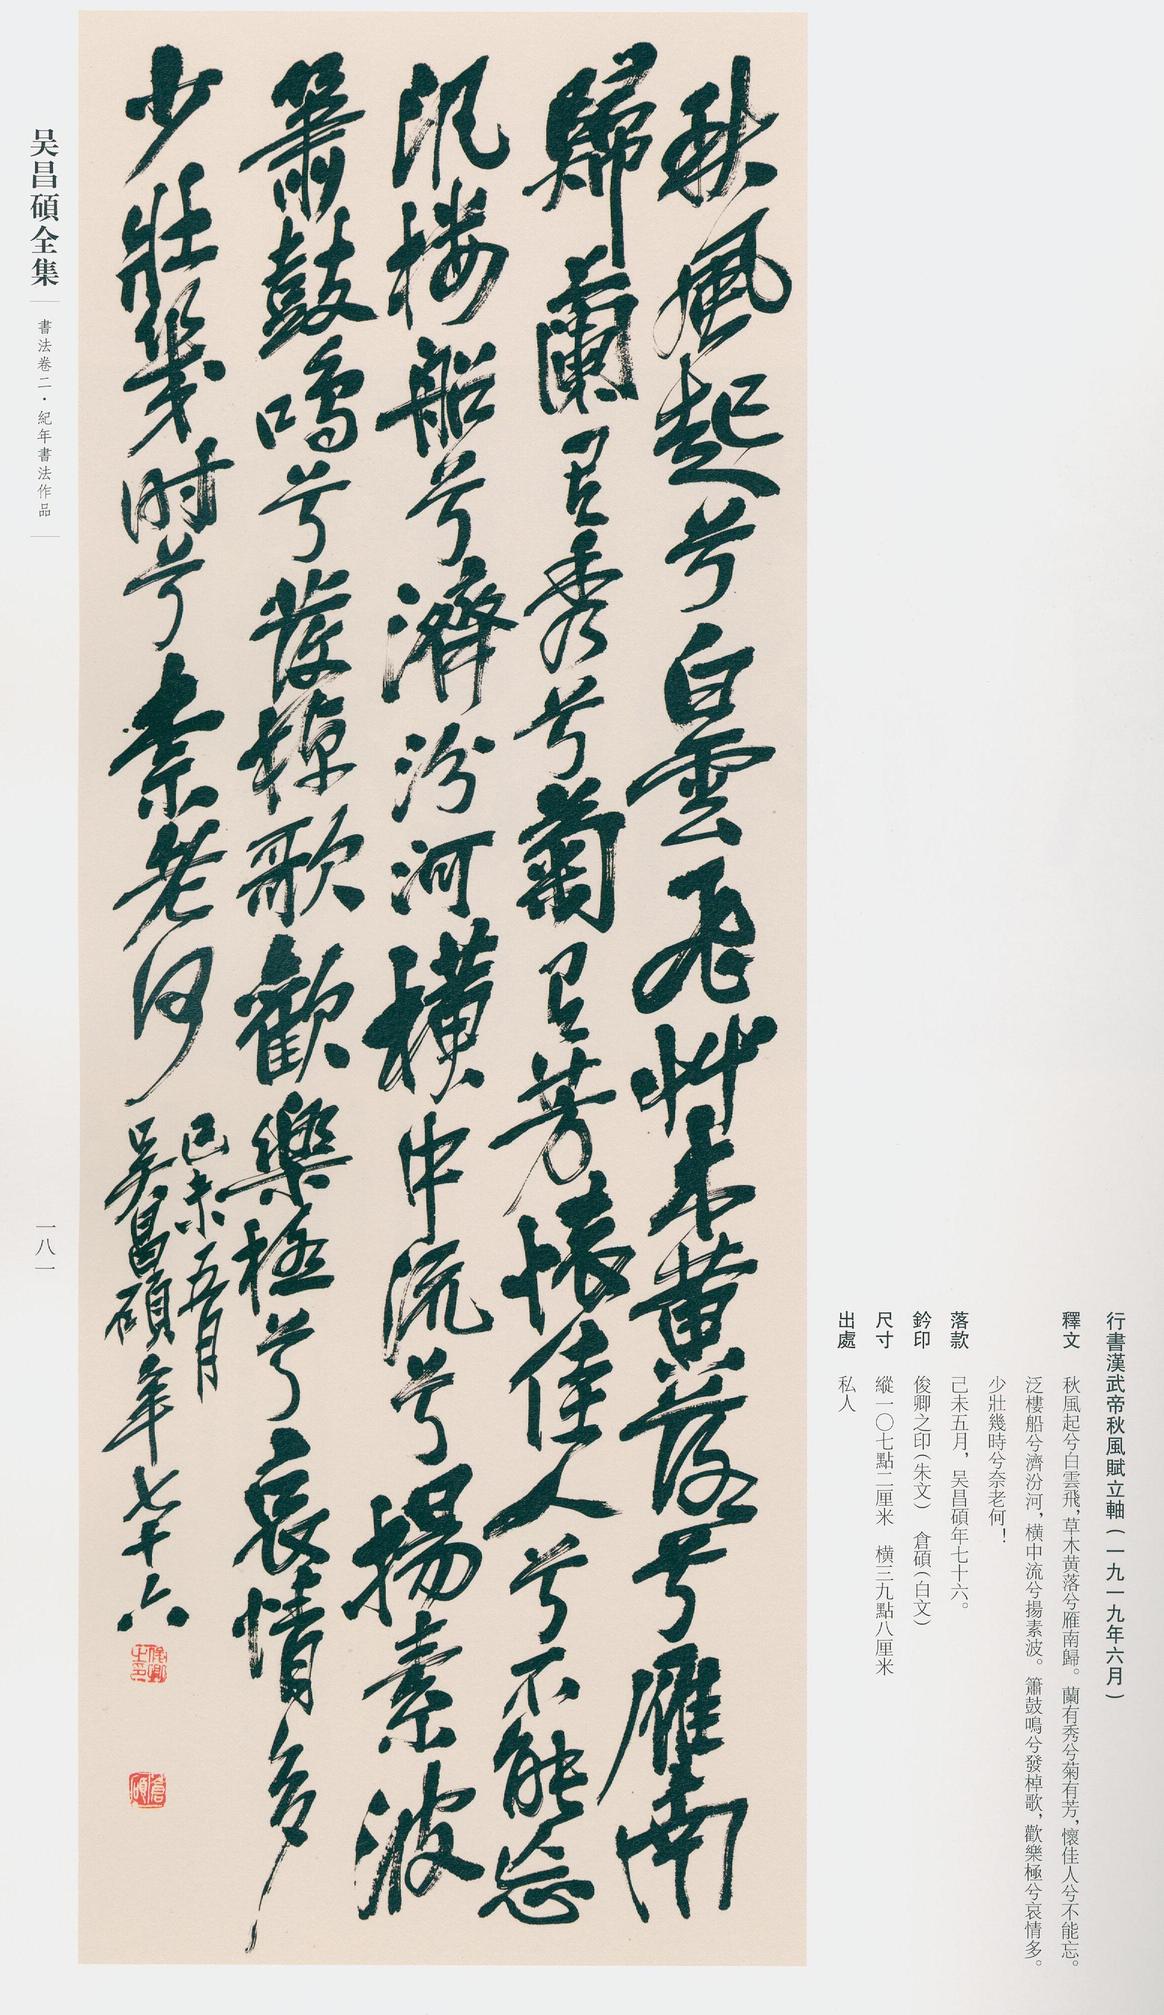 行書漢武帝秋風賦立軸（一九一九年六月）
釋文　秋風起兮白雲飛，草木黄落兮雁南歸。蘭有秀兮菊有芳，懷佳人兮不能忘。
泛樓船兮濟汾河，横中流兮揚素波。簫鼓鳴兮發棹歌，歡樂極兮哀情多。
少壯幾時兮奈老何！
落款　己未五月，吴昌碩年七十六。
鈐印　俊卿之印（朱文）　倉碩（白文）
尺寸　縱一〇七點二厘米　横三九點八厘米
出處　私人
秋風起兮白雲飛艸木黄落兮雁南
歸蘭有秀兮菊有芳懷佳人兮不能忘
汎樓船兮濟汾河横中流兮揚素波
簫鼓鳴兮發棹歌歡樂極兮哀情多
少壯幾时兮柰老何
己未五月
吴昌碩年七十六
俊卿之印
倉碩
吴昌碩全集
書法卷二・紀年書法作品
一八一